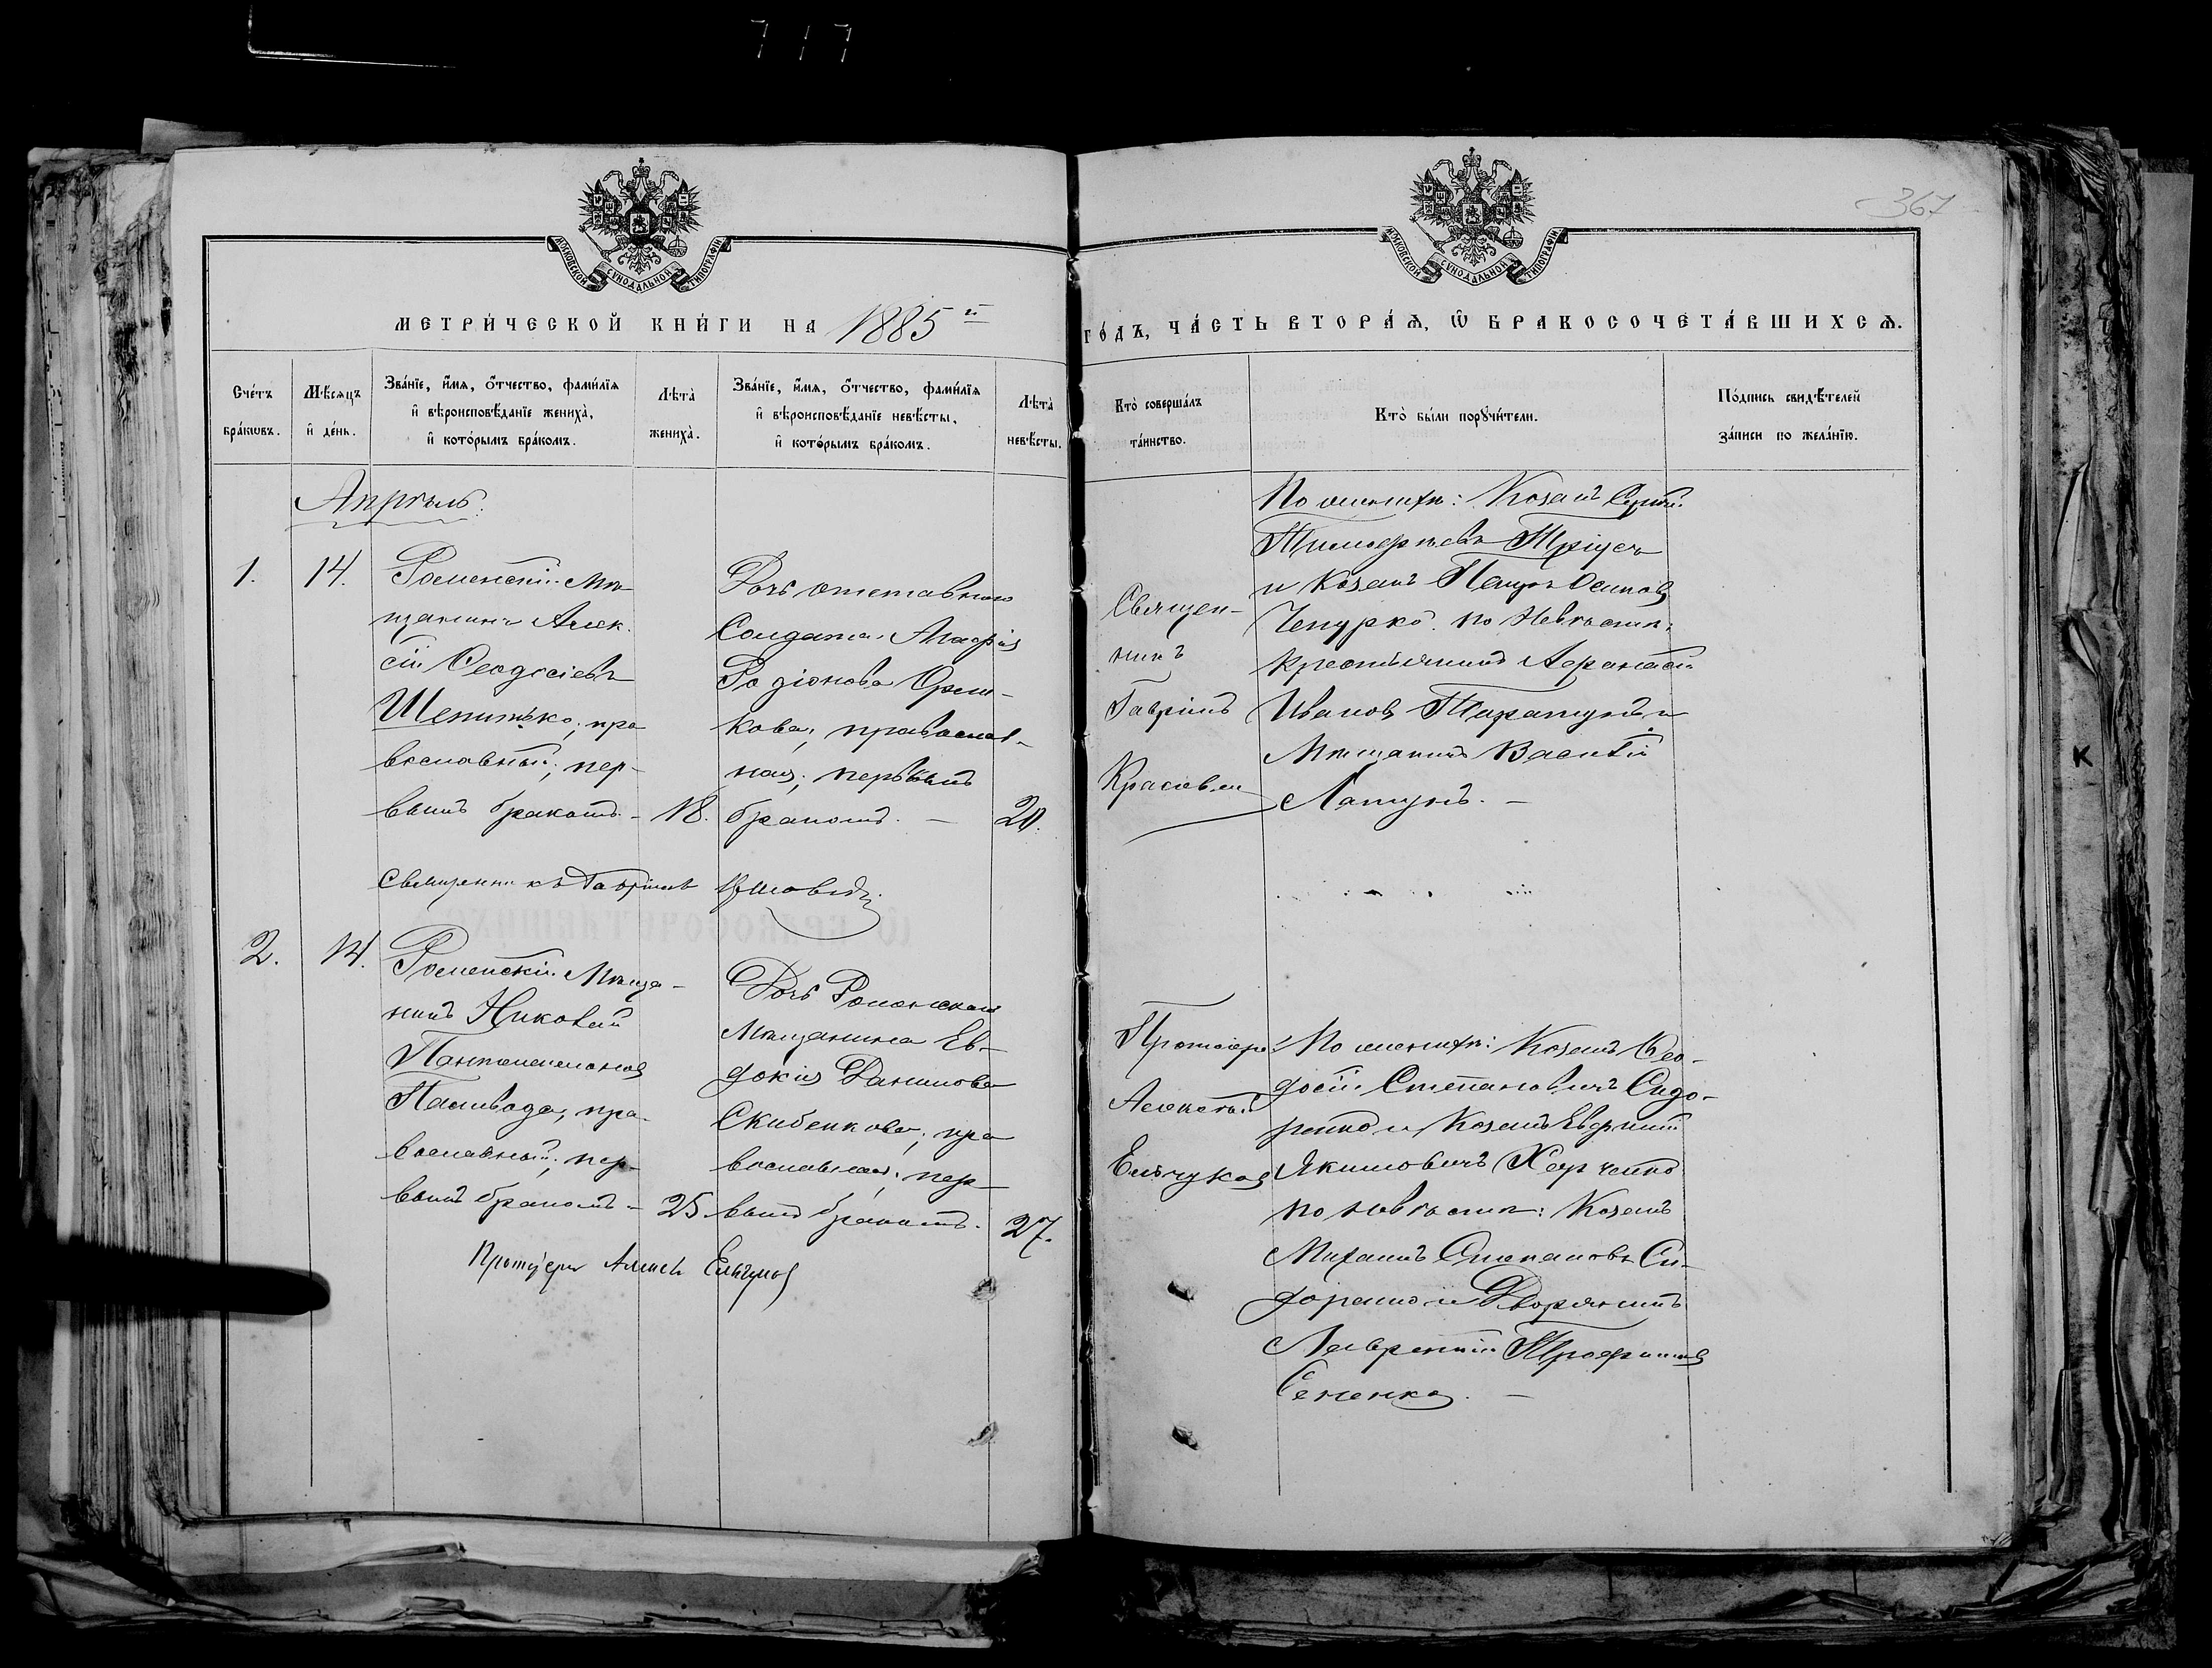 717
367
МОСКОВСКОЙ СУНОДАЛЬНОЙ ТИПОГРАФІИ
МОСКОВСКОЙ СУНОДАЛЬНОЙ ТИПОГРАФІИ
МЕТРИ́ЧЕСКОЙ КНИ́ГИ НА 1885й
ГО́ДЪ, ЧА́СТЬ ВТОРА́Ѧ, Ѽ БРАКОСОЧЕТА́ВШИХСѦ.
Сче́тъ
бра́кѡвъ.
Мѣ́сѧцъ
и҆ де́нь.
Зва́нїе, и҆́мѧ, ѻ҆́тчество, фами́лїѧ
и҆ вѣроисповѣ́данїе жениха̀,
и҆ кото́рымъ бра́комъ.
Лѣта̀
жениха̀.
Зва́нїе, и҆́мѧ, ѻ҆́тчество, фами́лїѧ
и҆ вѣроисповѣ́данїе невѣ́сты,
и҆ кото́рымъ бра́комъ.
Лѣта̀
невѣ́сты.
Кто̀ соверша́лъ
та́инство.
Кто̀ бы́ли порꙋчи́тели.
По́дпись свидѣ́телей
за́писи по жела́нїю.
Апрѣль.
1.
14.
Роменскій Мѣ-
щанинъ Алек-
сій Феодосіевъ
Шепитько, пра
вославный, пер-
вымъ бракомъ. - 18.
Дочь отставнаго
Солдата Марфа
Родіонова Ореш-
кова, православ-
ная, первымъ
бракомъ. — 20.
Священ-
никъ
Гавріилъ
По женихѣ: Козакъ Сергій
Тимофѣевъ
и Козакъ Петръ Осиповъ
Чепурко. по Невѣстѣ:
крестьянинъ Афанасій
Ивановъ
Мѣщанинъ Василій
Лапунъ. —
Священникъ Гавріилъ
2.
14.
Роменскій Мѣща-
нинъ Николай
Пантелеимоновъ
Паливода, пра-
вославный, пер-
вымъ бракомъ - 25
Дочь Роменскаго
Мѣщанина Ев-
докія Данилова
Скибенкова, пра
вославная, пер-
вымъ бракомъ. 27.
Протоіерей
Алексѣй
Ельчуковъ
По женихѣ: Козакъ Фео-
досій Степановичъ Сидо-
ренко и Козакъ Евфимій
Якимовичъ Харченко
по невѣстѣ: Козакъ
Михаилъ Степановъ Си-
доренко и Дворянинъ
Лаврентій Трофимовъ
Сененко. —
Протоіерей Алексѣй Ельчуковъ
К